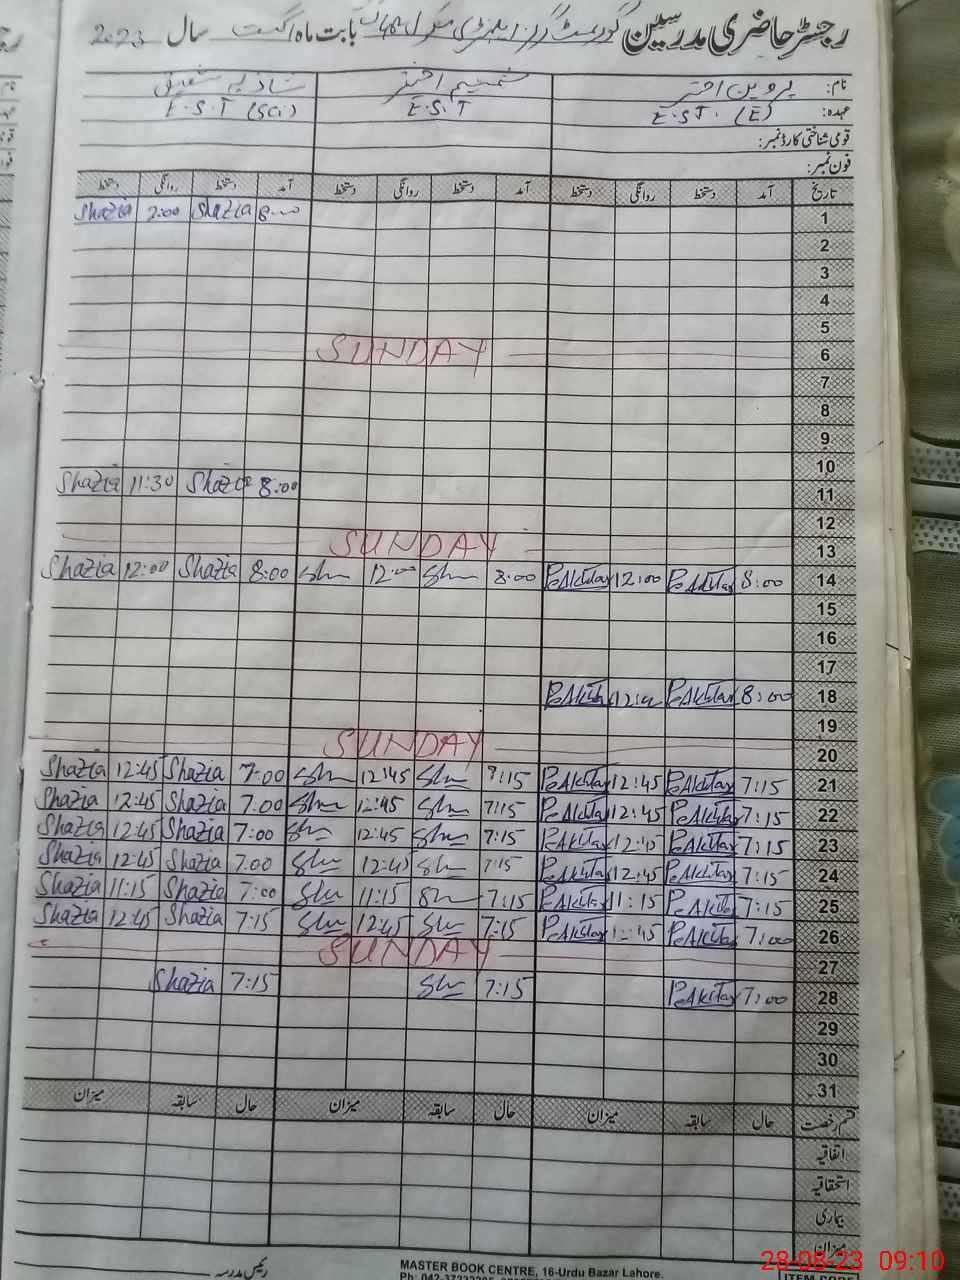 رجسٹر حاضری مدرسین گورنمنٹ گرلز ایلیمنٹری سکول بابت ماہ اگست سال 2023
نام: پروین اختر شمیم اختر شازیہ شفیق
عہدہ: E.S.T. (E) E.S.T E.S.T (Sci)
قومی شناختی کارڈ نمبر:
فون نمبر:
تاریخ آمد دستخط روانگی دستخط آمد دستخط روانگی دستخط آمد دستخط روانگی دستخط
1 8:00 Shazia 2:00 Shazia
2
3
4
5
6 SUNDAY
7
8
9
10
11 8:00 Shazia 11:30 Shazia
12
13 SUNDAY
14 8:00 PAkhtar 12:00 PAkhtar 8:00 12:00 8:00 Shazia 12:00 Shazia
15
16
17
18 8:00 PAkhtar PAkhtar
19
20 SUNDAY
21 7:15 PAkhtar 12:45 PAkhtar 7:15 12:45 7:00 Shazia 12:45 Shazia
22 7:15 PAkhtar 12:45 PAkhtar 7:15 12:45 7:00 Shazia 12:45 Shazia
23 7:15 PAkhtar 12:45 PAkhtar 7:15 12:45 7:00 Shazia 12:45 Shazia
24 7:15 PAkhtar 12:45 PAkhtar 7:15 12:45 7:00 Shazia 12:45 Shazia
25 7:15 PAkhtar 11:15 PAkhtar 7:15 11:15 7:00 Shazia 11:15 Shazia
26 7:00 PAkhtar 12:45 PAkhtar 7:15 12:45 7:15 Shazia 12:45 Shazia
27 SUNDAY
28 7:00 PAkhtar 7:15 7:15 Shazia
29
30
31
قسم رخصت حال سابقہ میزان حال سابقہ میزان حال سابقہ میزان
اتفاقیہ
استحقاقیہ
بیماری
میزان
رئیس مدرسہ
MASTER BOOK CENTRE, 16-Urdu Bazar Lahore.
28-08-23 09:10